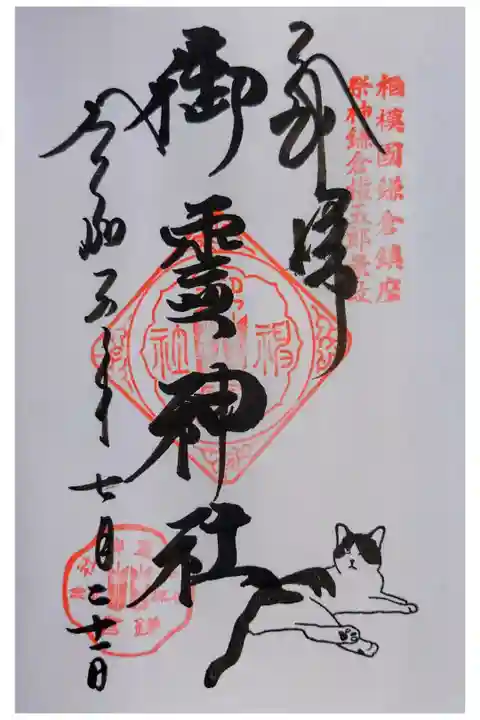 相模國鎌倉鎮座
祭神鎌倉権五郎景政
奉拝
御霊神社
令和五年七月二十一日